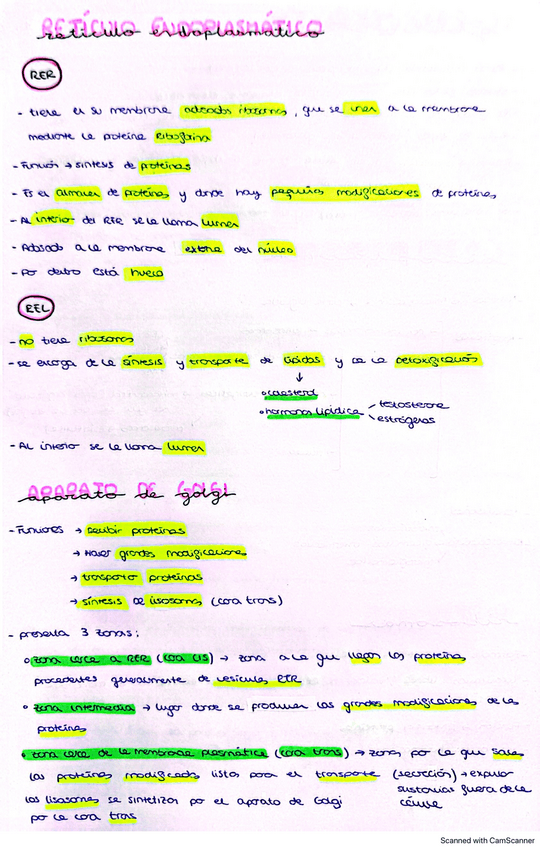 RETÍCULO ENDOPLASMÁTICO
retículo endoplasmático
RER
- tiene en su membrana adosados ribosomas, que se unen a la membrana
mediante la proteína Riboforina
- Función → síntesis de proteínas
- Es el almacén de proteínas y donde hay pequeñas modificaciones de proteínas
- Al interior del RER se le llama lumen
- Adosado a la membrana externa del núcleo
- Por dentro está hueco
REL
- no tiene ribosomas
- se encarga de la síntesis y transporte de lípidos y de la detoxificación
↓
• colesterol
• hormonas lipídicas - testosterona
- estrógenos
- Al interior se le llama lumen
APARATO DE GOLGI
aparato de golgi
- Funciones → recibir proteínas
→ Hacer grandes modificaciones
→ transportar proteínas
→ síntesis de lisosomas (cara trans)
- presenta 3 zonas:
• zona cerca a RER (cara cis) → zona a la que llegan las proteínas
procedentes generalmente de vesículas RER
• zona intermedia → lugar donde se producen las grandes modificaciones de las
proteínas
• zona cerca de la membrana plasmática (cara trans) → zona por la que salen
las proteínas modificadas listas para el transporte (secreción) → expulsar
sustancias fuera de la
célula
los lisosomas se sintetizan por el aparato de Golgi
por la cara trans
Scanned with CamScanner